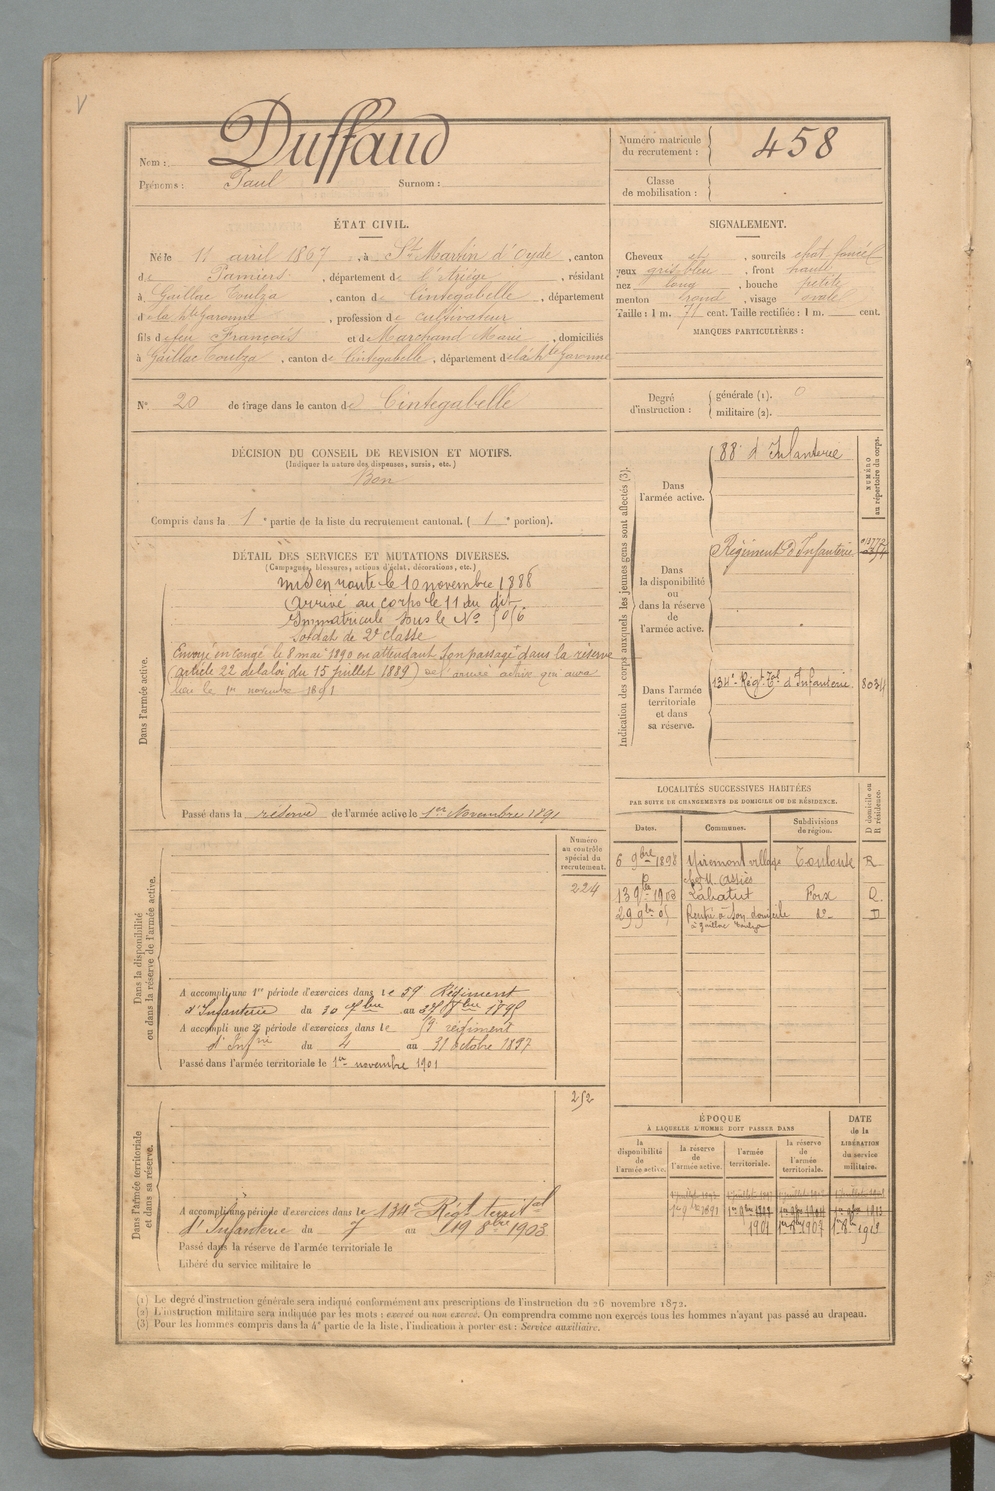 V
Nom : Duffaud
Prénoms : Paul Surnom :
Numéro matricule du recrutement : 458
Classe de mobilisation :
ÉTAT CIVIL.
Né le 11 avril 1867, à St Martin d'Oyde, canton
de Pamiers, département de l'Ariège, résidant
à Gaillac Toulza, canton de Cintegabelle, département
d e la hte Garonne, profession de cultivateur
fils de feu François et de Marchand Marie, domiciliés
à Gaillac Toulza, canton de Cintegabelle, département de la hte Garonne
N° 20 de tirage dans le canton de Cintegabelle
SIGNALEMENT.
Cheveux et, sourcils chat foncé
yeux gris bleu, front haut
nez long, bouche petite
menton rond, visage ovale
Taille : 1 m. 71 cent. Taille rectifiée : 1 m. cent.
MARQUES PARTICULIÈRES :
Degré d'instruction : générale (1). 0
militaire (2).
DÉCISION DU CONSEIL DE REVISION ET MOTIFS.
(Indiquer la nature des dispenses, sursis, etc.)
Bon
Compris dans la 1e partie de la liste du recrutement cantonal. (1e portion).
DÉTAIL DES SERVICES ET MUTATIONS DIVERSES.
(Campagnes, blessures, actions d'éclat, décorations, etc.)
Dans l'armée active.
Mis en route le 10 novembre 1888
Arrivé au corps le 11 du dit
Immatricule sous le No 5056
Soldat de 2e classe
Envoyé en congé le 8 mai 1890 en attendant son passage dans la réserve
(article 22 de la loi du 15 juillet 1889) de l'armée active qui aura
lieu le 1er novembre 1891
Passé dans la réserve de l'armée active le 1er Novembre 1891
Indication des corps auxquels les jeunes gens sont affectés (3).
NUMÉRO au répertoire du corps.
Dans l'armée active.
88e d'Infanterie
Dans la disponibilité ou dans la réserve de l'armée active.
Régiment d'Infanterie
Dans l'armée territoriale et dans sa réserve.
134e Régt Tal d'Infanterie 8034
LOCALITÉS SUCCESSIVES HABITÉES
PAR SUITE DE CHANGEMENTS DE DOMICILE OU DE RÉSIDENCE.
Dates. Communes. Subdivisions de région. D domicile ou R résidence.
6 9bre 1898 Miremont village Toulouse R
13 9bre 1903 Labatut Foix D.
29 9bre 05 Rentré à son domicile do D
à Gaillac Toulza
Dans la disponibilité ou dans la réserve de l'armée active.
Numéro au contrôle spécial du recrutement.
224
A accompli une 1re période d'exercices dans le 59 Régiment
d'Infanterie du 30 7bre au 27 8bre 1895
A accompli une 2e période d'exercices dans le 59 régiment
d'Infrie du 4 au 31 octobre 1897
Passé dans l'armée territoriale le 1er novembre 1901
Dans l'armée territoriale et dans sa réserve.
252
A accompli une période d'exercices dans le 134e Régt territal
d'Infanterie du 7 au 19 8bre 1903
Passé dans la réserve de l'armée territoriale le
Libéré du service militaire le
ÉPOQUE
À LAQUELLE L'HOMME DOIT PASSER DANS
la disponibilité de l'armée active. la réserve de l'armée active. l'armée territoriale. la réserve de l'armée territoriale.
DATE de la LIBÉRATION du service militaire.
1901
(1) Le degré d'instruction générale sera indiqué conformément aux prescriptions de l'instruction du 26 novembre 1872.
(2) L'instruction militaire sera indiquée par les mots : exercé ou non exercé. On comprendra comme non exercés tous les hommes n'ayant pas passé au drapeau.
(3) Pour les hommes compris dans la 4e partie de la liste, l'indication à porter est : Service auxiliaire.